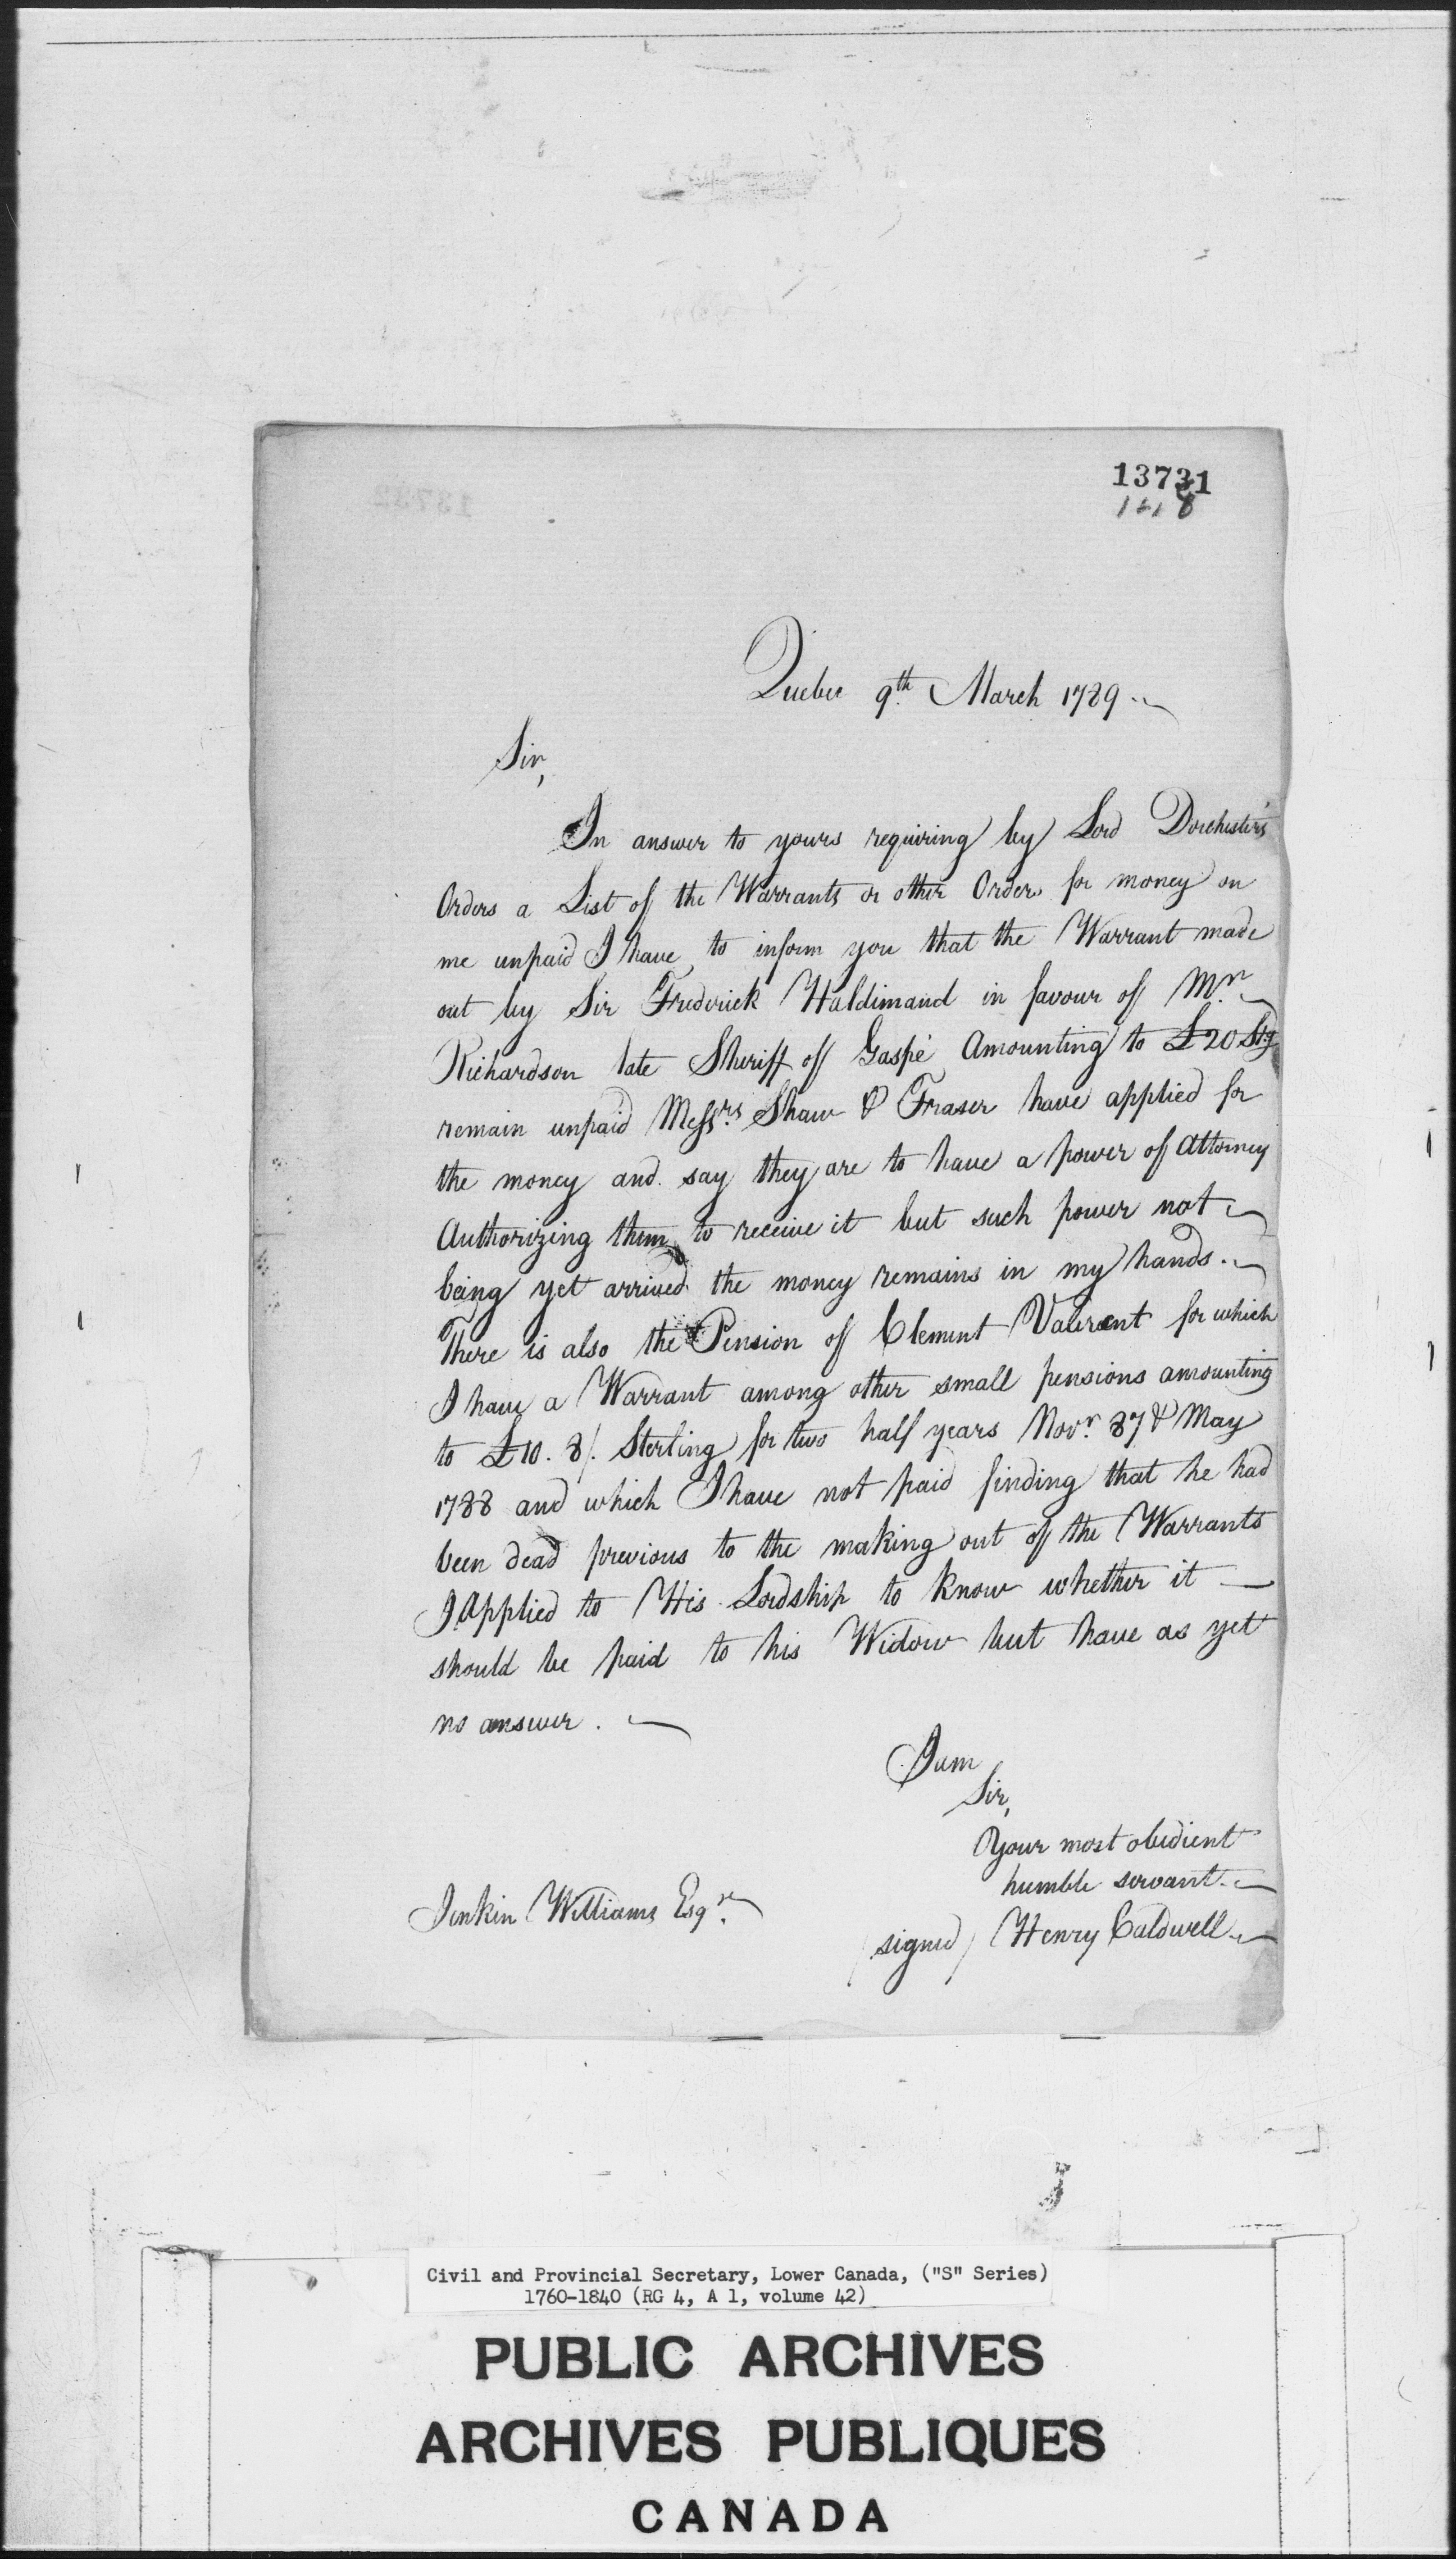 13731
Quebec 9th March 1789
Sir,
In answer to yours requiring by Lord Dorchester's
Orders a List of the Warrants or other Orders for money on
me unpaid I have to inform you that the Warrant made
out by Sir Frederick Haldimand in favour of Mr.
Richardson late Sheriff of Gaspé Amounting to £20 Stg
remain unpaid Messrs Shaw & Fraser have applied for
the money and say they are to have a power of Attorney
Authorizing them to receive it but such power not
being yet arrived the money remains in my hands.
There is also the Pension of Clement Valerent for which
I have a Warrant among other small pensions amounting
to £10. 8/. Sterling for two half years Novr. 87 & May
1788 and which I have not paid finding that he had
been dead previous to the making out of the Warrants
I Applied to His Lordship to know whether it
should be paid to his Widow but have as yet
no answer.
I am
Sir,
Your most obedient
humble servant
Jenkin Williams Esqr.
/signed/ Henry Caldwell
Civil and Provincial Secretary, Lower Canada, ("S" Series)
1760-1840 (RG 4, A 1, volume 42)
PUBLIC ARCHIVES
ARCHIVES PUBLIQUES
CANADA